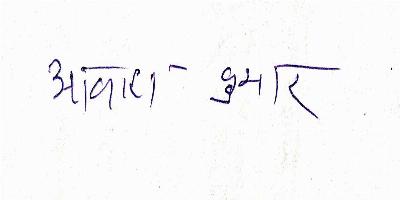 आकाश कुमार